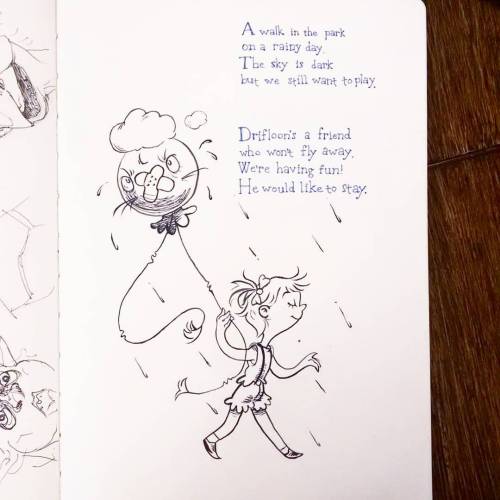 A walk in the park
on a rainy day.
The sky is dark
but we still want to play.
Drifloon's a friend
who won't fly away.
We're having fun!
He would like to stay.